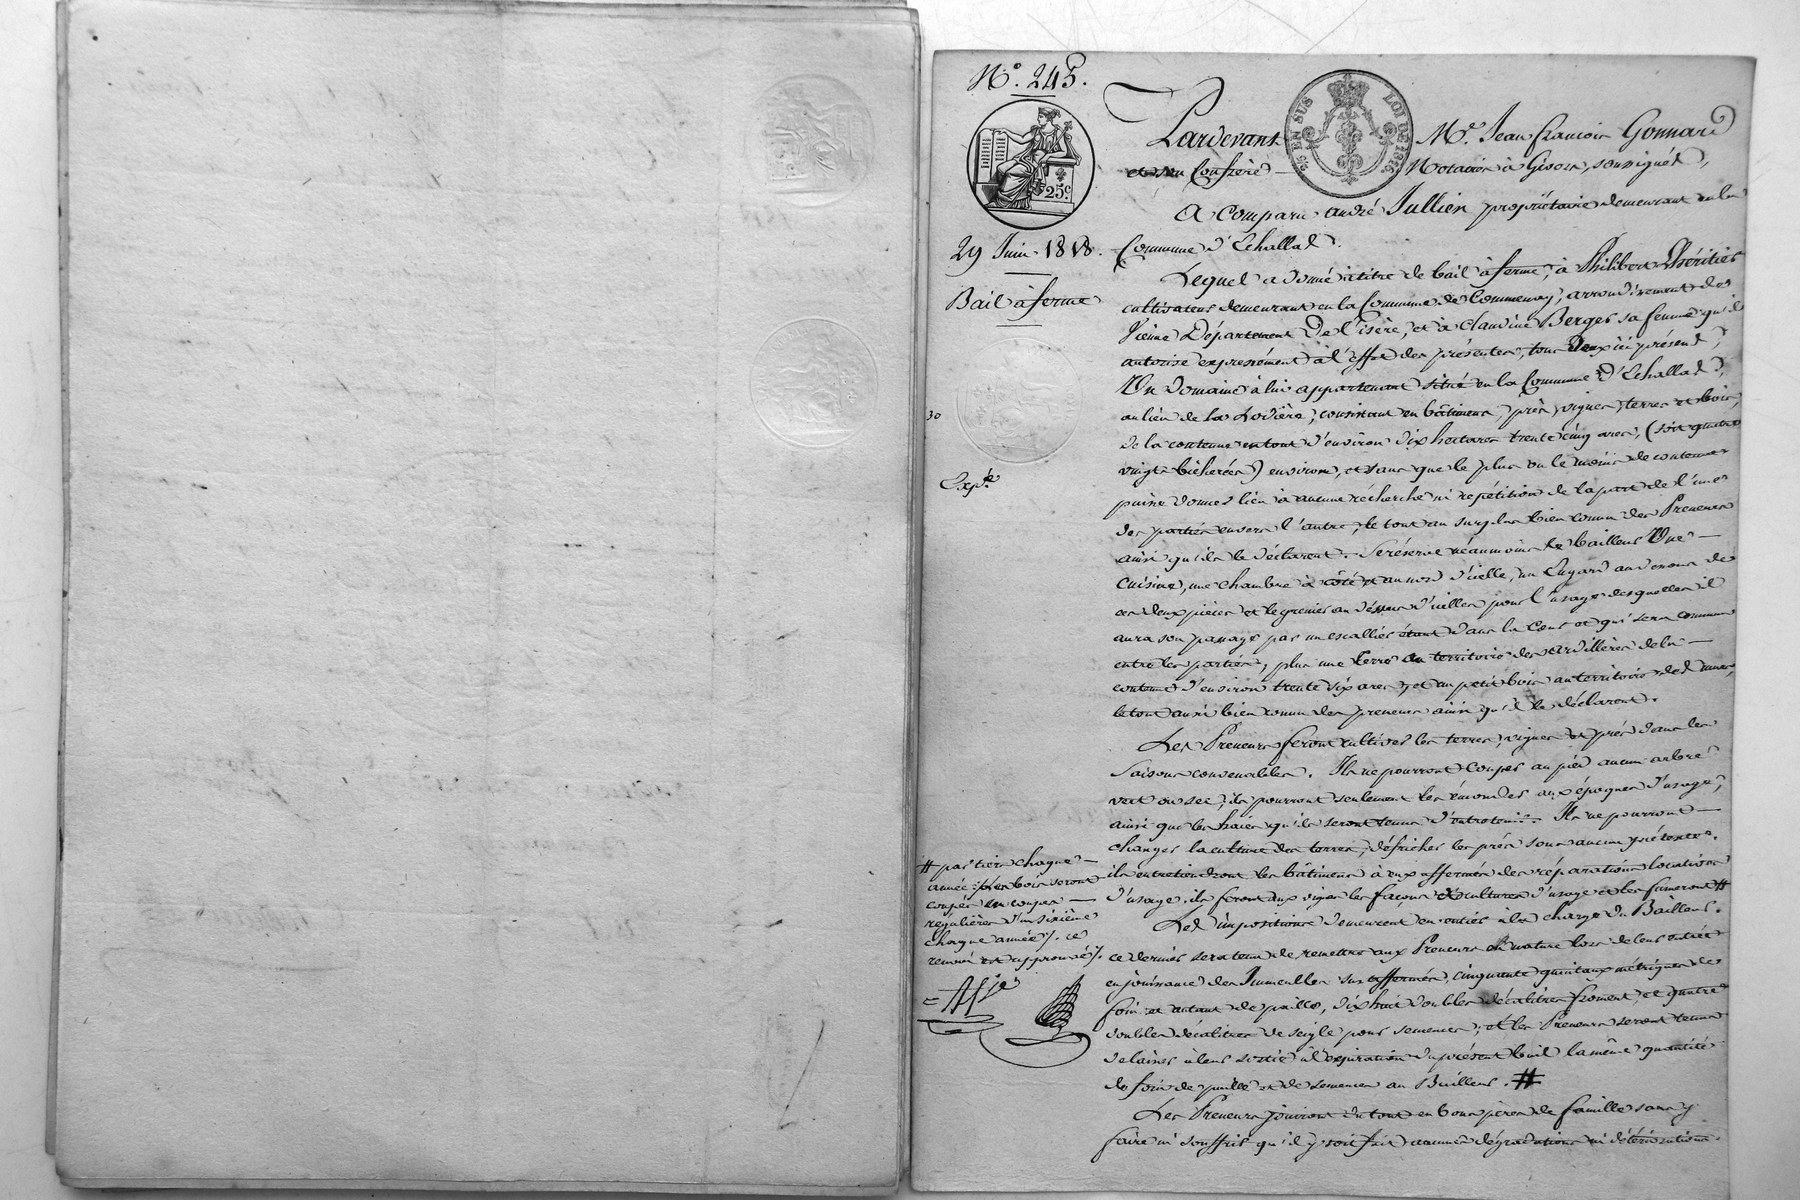 N.° 245.
25 EN SUS LOI DE 1816.
25.c
29 Juin 1818.
Bail à ferme
30
Exp.é
Pardevant M.e Jean François Gonnard
et son Confrère Notaires à Givors, soussignés,
A comparu andré Jullien propriétaire demeurant en la
Commune d'Echallas.
Lequel a donné à titre de bail à ferme, à Philibert
cultivateur demeurant en la Commune de Communay, arrondissement de
Vienne Département De l'isère, et à Claudine Berger sa femme qu'il
autorise expressément à l'effet des présentes, tous Deux ici présens,
Un Domaine à lui appartenant situé en la Commune d'Echallas,
au lieu de la Lovière, consistant en bâtimens, près, vignes, terres et bois,
de la contenue en tout d'environ dix hectares trente cinq ares, (soit quatre
vingt bicherées) environ, et sans que le plus ou le moins de contenue
puisse donner lieu à aucune récherche ni repétition de la part de l'une
des parties envers l'autre, le tout au surplus bien connu des Preneurs
ainsi qu'ils le déclarent. Se réserve néaumoins le bailleur Une
Cuisine, une chambre à côté et au nord d'icelle, un hugard au devant de
ces deux pièces et le grenier au dessus d'icelles pour l'usage desquelles il
aura son passage par un escallier étant dans la Cour et qui sera commun
entre les parties, plus une terre au territoire des de la
contenue d'environ trente six ares, et un petit bois au territoire des
le tout aussi bien connu des preneurs ainsi qu'ils le déclarent.
Les Preneurs feront cultiver les terres, vignes et près dans les
Saisons convenables. Ils ne pourront Couper au pied aucun arbre
vert ou sec, ils pourront seulement les émonder aux époques d'usage,
ainsi que les haies qu'ils seront tenus d'entretenir. Ils ne pourront
changer la culture des terres, défricher les près sous aucun prétexte.
ils entretiendront les bâtimens à eux affermés des réparations locatives
d'usage. ils feront aux vignes les façons et cultures d'usage et les fumeront #
# par tiers chaque
année; les bois seront
coupés en coupes
régulières d'un sixième
chaque année /. ce
renvoi est approuvé /.
Les impositions demeurent en entier à la charge du Bailleur.
ce dernier sera tenu de remettre aux Preneurs en nature lors de leur entrée
en jouissance des Immeubles sus affermés, cinquante quintaux métriques de
foin et autant de paille, dix huit doubles décalitres froment, et quatre
doubles décalitres de seigle pour semences; et les Preneurs seront tenus
de laisser à leur sortie à l'expiration du présent bail la même quantité
de foin de paille et de semences au Bailleur. #
Les Preneurs jouiront du tout en bons pères de famille sans y
faire ni souffrir qu'il y soit fait aucunes dégradations ni détériorations.